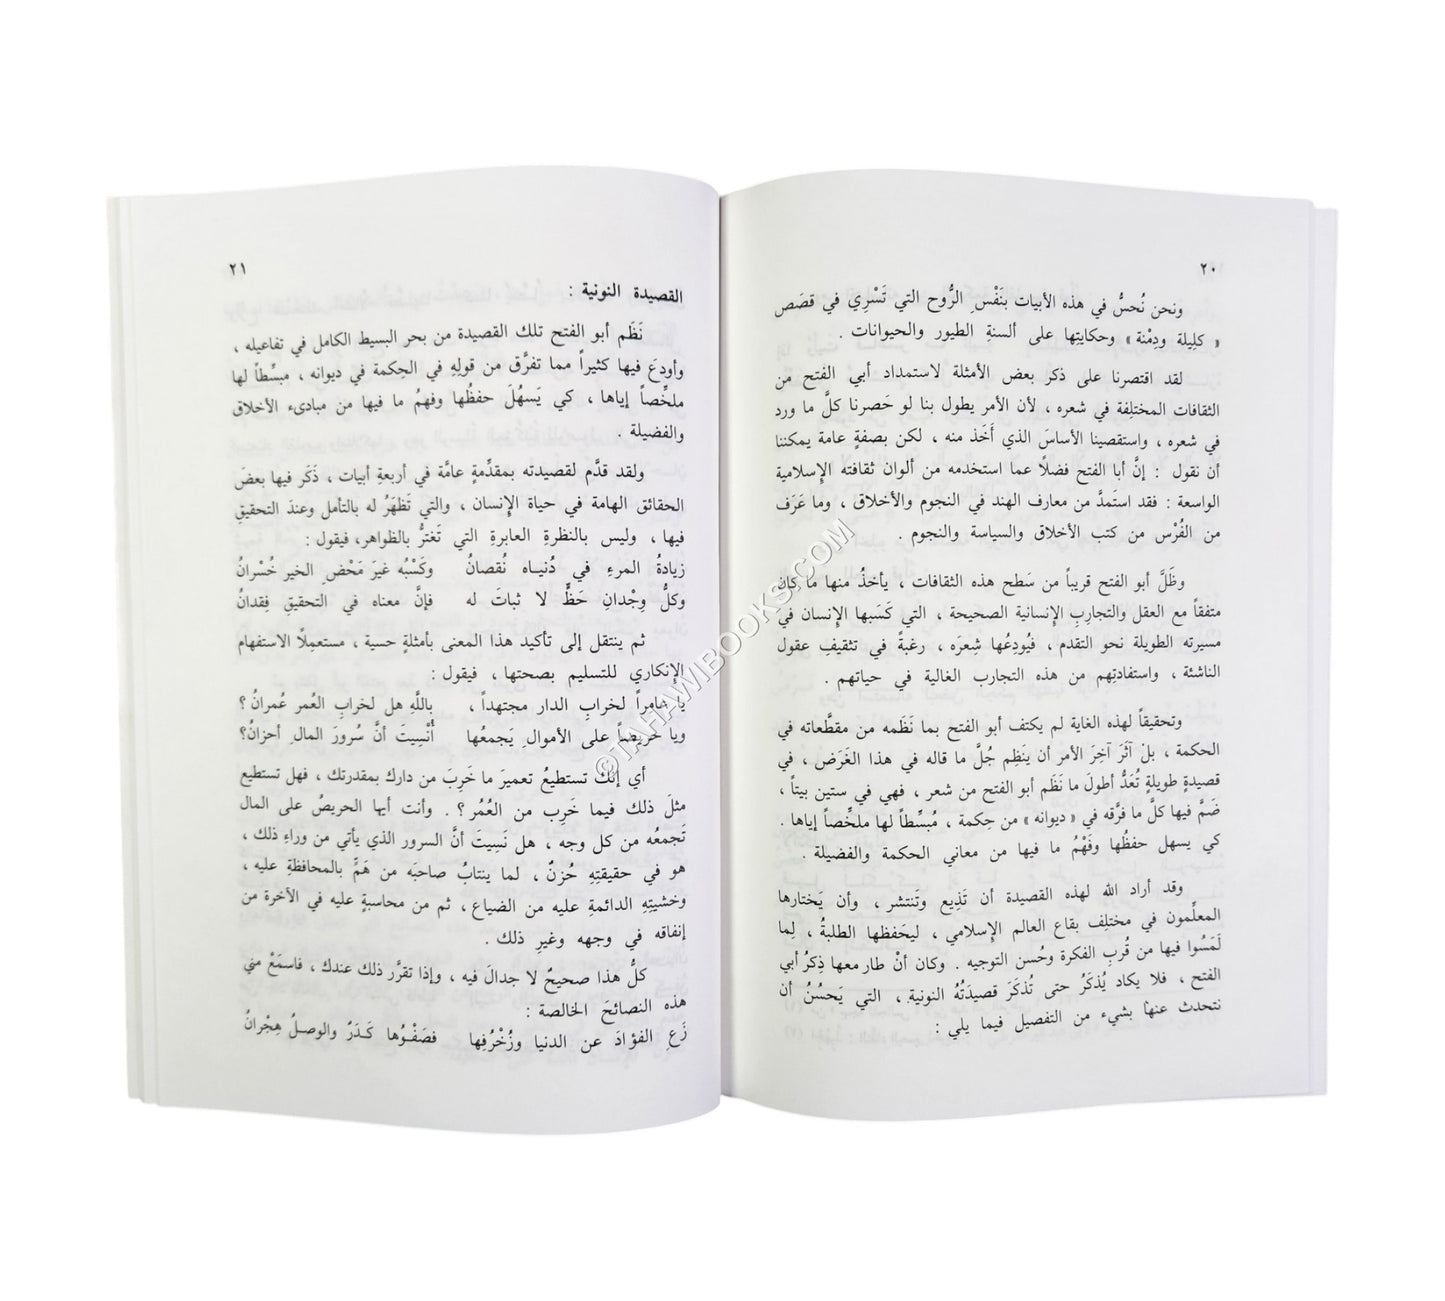 ٢٠
ونحن نُحسُّ في هذه الأبيات بنَفْسِ الرُّوح التي تَسْرِي في قصَص
« كلِيلة ودِمْنة » وحكايتِها على ألسنةِ الطيور والحيوانات .
لقد اقتصرنا على ذكر بعض الأمثلة لاستمداد أبي الفتح من
الثقافات المختلِفة في شعره ، لأن الأمر يطول بنا لو حَصرنا كلَّ ما ورد
في شعره ، واستقصينا الأساسَ الذي أَخَذ منه ، لكن بصفةٍ عامة يمكننا
أن نقول : إنَّ أبا الفتح فضلاً عما استخدمه من ألوان ثقافته الإِسلامية
الواسعة : فقد استَمدَّ من معارف الهند في النجوم والأخلاق ، وما عَرَف
من الفُرْس من كتب الأخلاق والسياسة والنجوم .
وظَلَّ أبو الفتح قريباً من سَطح هذه الثقافات ، يأخذُ منها ما كان
متفقاً مع العقل والتجارِبِ الإِنسانية الصحيحة ، التي كَسَبها الإِنسان في
مسيرته الطويلة نحو التقدم ، فيُودِعُها شِعرَه ، رغبةً في تثقيفِ عقول
الناشئة ، واستفادتِهم من هذه التجارب الغالية في حياتهم .
وتحقيقاً لهذه الغاية لم يكتف أبو الفتح بما نَظَمه من مقطَّعاته في
الحكمة ، بلْ آثَرَ آخِرَ الأمر أن ينَظِم جُلَّ ما قاله في هذا الغَرَض ، في
قصيدةٍ طويلةٍ تُعَدُّ أطولَ ما نَظَم أبو الفتح من شعر ، فهي في ستين بيتاً ،
ضَمَّ فيها كلَّ ما فرَّقه في « ديوانه » من حِكمة ، مُبسِّطاً لها ملخِّصاً إياها .
كي يسهل حفظُها وفَهْمُ ما فيها من معاني الحكمة والفضيلة .
وقد أراد الله لهذه القصيدة أن تَذِيع وتَنتشر ، وأن يَختارها
المعلِّمون في مختلِف بقاع العالم الإِسلامي ، ليحَفظها الطلبةُ ، لِما
لَمَسُوا فيها من قُربِ الفكرة وحُسن التوجيه . وكان أنْ طار معها ذِكرُ أبي
الفتح ، فلا يكاد يُذكَرُ حتى تُذكَرَ قصيدَتُهُ النونية ، التي يَحسُنُ أن
نتحدث عنها بشيء من التفصيل فيما يلي :
٢١
القصيدة النونية :
نَظَم أبو الفتح تلك القصيدة من بحر البسيط الكامل في تفاعيله ،
وأودعَ فيها كثيراً مما تفرَّق من قولِهِ في الحِكمة في ديوانه ، مبسِّطاً لها
ملخِّصاً إياها ، كي يَسهُلَ حفظُها وفهمُ ما فيها من مبادىء الأخلاق
والفضيلة .
ولقد قدَّم لقصيدته بمقدِّمةٍ عامَّة في أربعةِ أبيات ، ذَكَر فيها بعضَ
الحقائق الهامة في حياة الإِنسان ، والتي تَظهَرُ له بالتأمل وعندَ التحقيقِ
فيها ، وليس بالنظرةِ العابرةِ التي تَغترُّ بالظواهر، فيقول :
زيادةُ المرءِ في دُنياه نُقصانُ    وكَسْبُه غيرَ مَحْضِ الخير خُسْرانُ
وكلُّ وِجْدانِ حَظٍّ لا ثباتَ له    فإنَّ معناه في التحقيقِ فِقدانُ
ثم ينتقل إلى تأكيد هذا المعنى بأمثلةٍ حسية ، مستعمِلًا الاستفهام
الإِنكاري للتسليم بصحتها ، فيقول :
يا عامِراً لخرابِ الدار مجتهداً ،    باللَّهِ هل لخرابِ العُمر عُمرانُ ؟
ويا حريصاً على الأموالِ يَجمعُها    أُنْسِيتَ أنَّ سُرورَ المالِ أحزانُ؟
أي إنك تستطيعُ تعميرَ ما خَرِبَ من دارك بمقدرتك ، فهل تستطيع
مثلَ ذلك فيما خَرِب من العُمُر ؟ . وأنت أيها الحريصُ على المال
تَجمعُه من كل وجه ، هل نَسِيتَ أنَّ السرور الذي يأتي من وراءِ ذلك ،
هو في حقيقتِهِ حُزنٌ ، لما ينتابُ صاحبَه من هَمٍّ بالمحافظةِ عليه ،
وخشيتِهِ الدائمةِ عليه من الضياع ، ثم من محاسبةٍ عليه في الآخرة من
إنفاقه في وجهه وغيرِ ذلك .
كلُّ هذا صحيحٌ لا جدالَ فيه ، وإذا تقرَّر ذلك عندك ، فاسمَعْ مني
هذه النصائحَ الخالصة :
زَعِ الفؤادَ عن الدنيا وزُخْرُفِها    فصَفْوُها كَدَرٌ والوصلُ هِجْرانُ
©TAHAWIBOOKS.COM